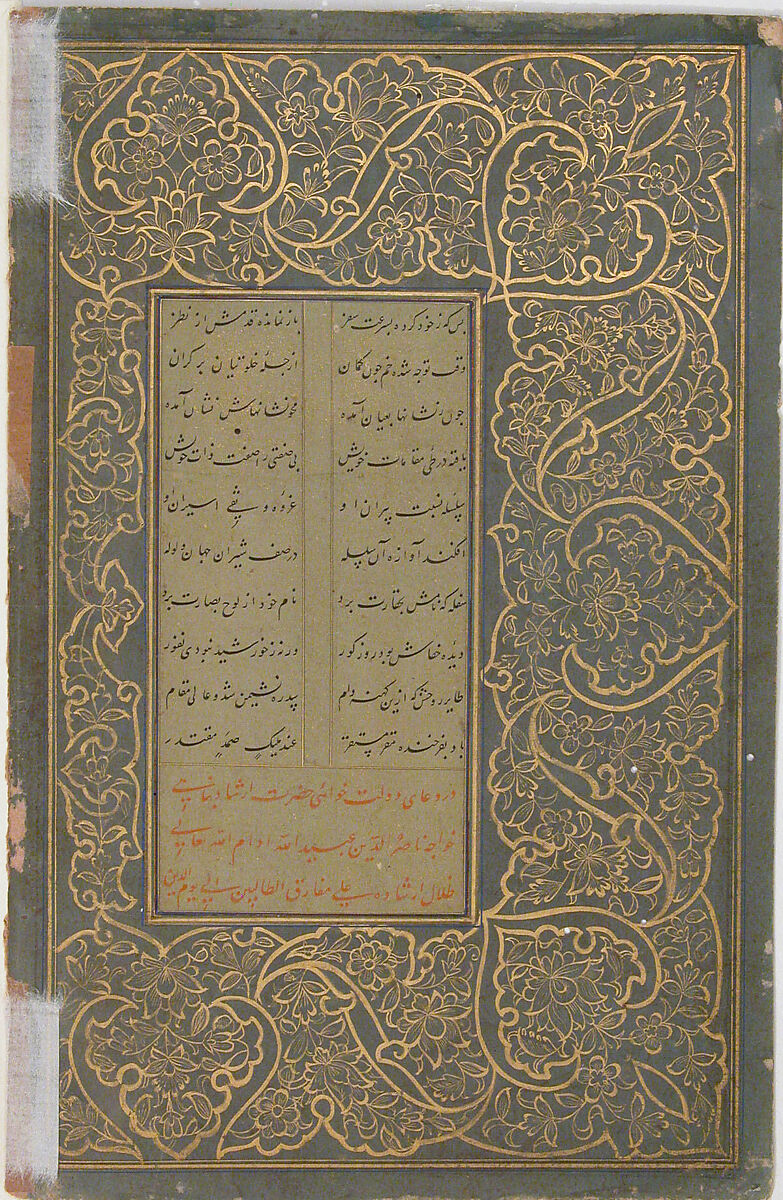 بس که ز خود کرده بسرعت سفر باز نمانده قدمش از نظر
وقف توجه شده خم چون کمان از جمله خلوتیان بر کران
چون ز نشانها بعیان آمده محو نشانهاش نشان آمده
یافته در طی مقامات خویش بی صفتی را صفت ذات خویش
سلسله نسبت پیران او عروه وثقی اسیران او
افکند آوازه آن سلسله در صف شیران جهان ولوله
سفله که نامش بحقارت برد نام خود از لوح بصارت برد
دیده خفاش بود روز کور ورنه ز خورشید نبودی نفور
طایر روحش که ازین کهنه دام سدره نشیمن شد و عالی مقام
باد بفرخنده مقر مستقر عند ملیک صمد مقتدر
در دعای دولت خواهی حضرت ارشاد پناهی
خواجه ناصر الدین عبید الله ادام الله تعالی
ظلال ارشاده علی مفارق الطالبین الی یوم الدین